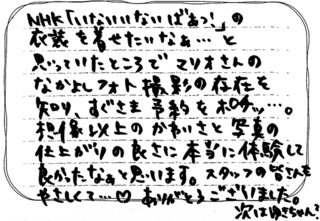 NHK「いないいないばぁっ！」の
衣装を着せたいなぁ…と
思っていたところでマリオさんの
なかよしフォト撮影の存在を
知り、すぐさま予約をポチッ…。
想像以上のかわいさと写真の
仕上がりの良さに本当に体験して
良かったなぁと思います。スタッフの皆さんも
やさしくて…♡ ありがとうございました。
次はゆきちゃん？